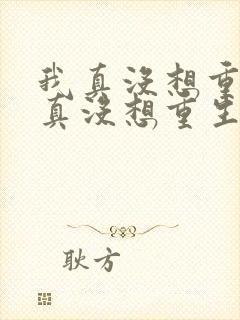 我真没想重
真没想重生
耿方